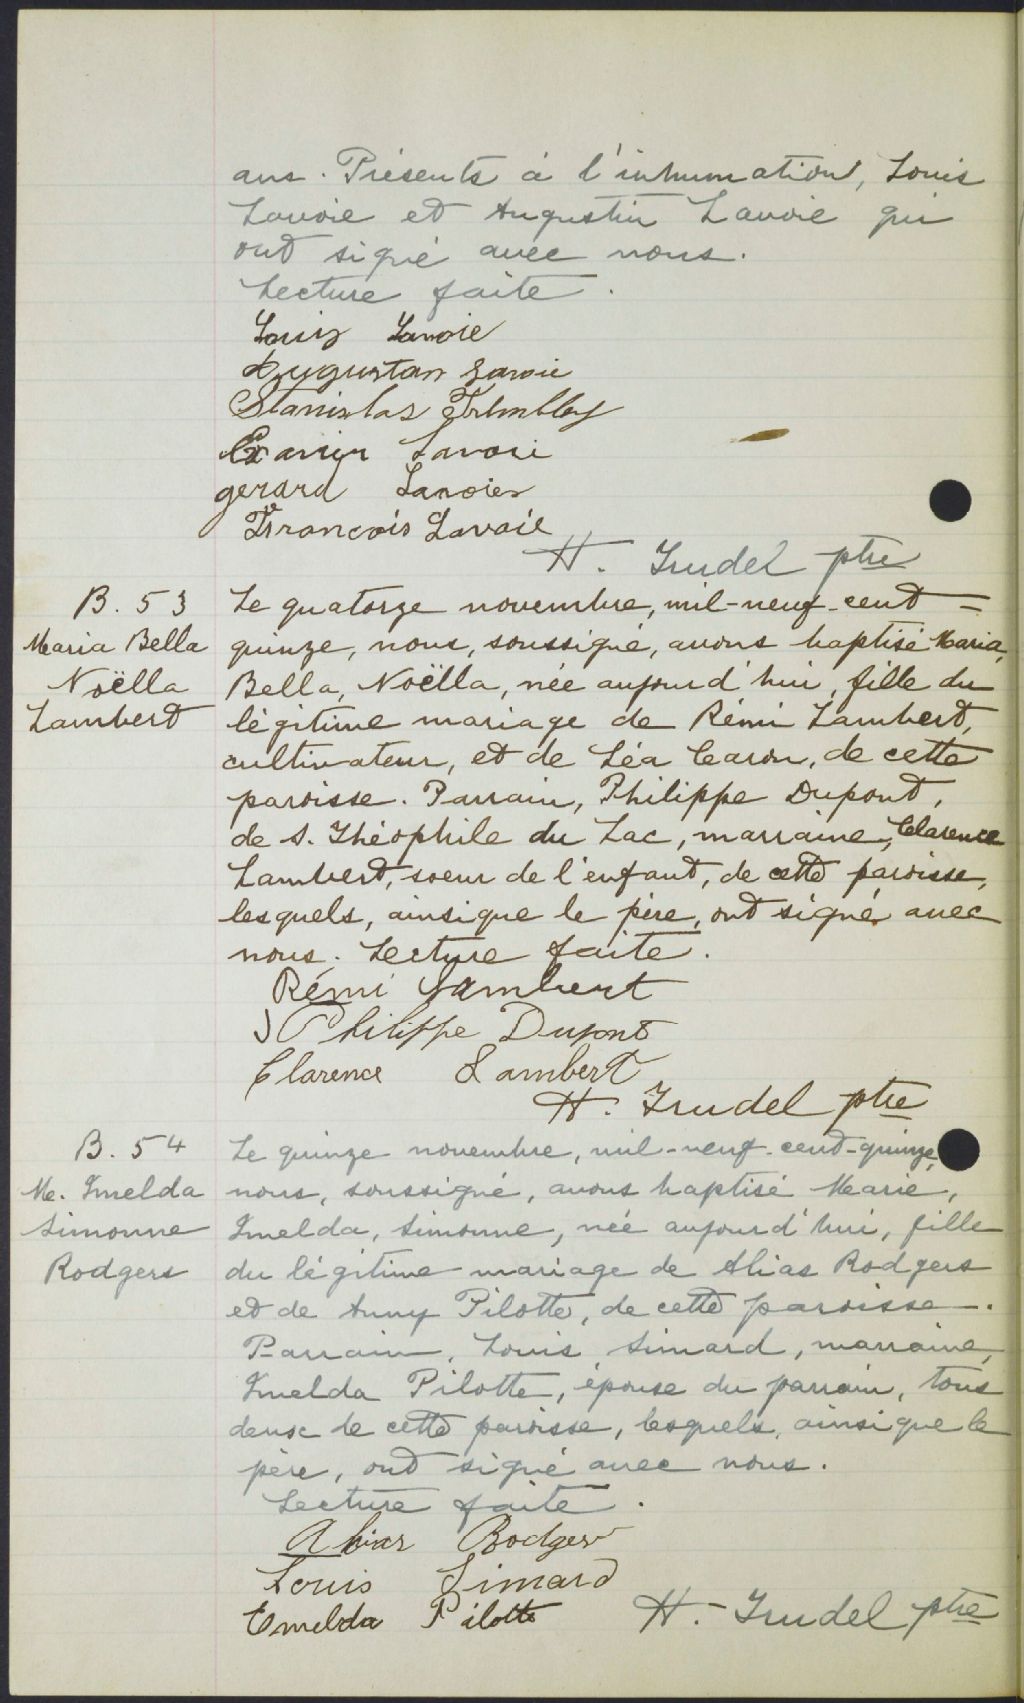 ans. Présents à l'inhumation, Louis
Lavoie et Augustin Lavoie qui
ont signé avec nous.
Lecture faite.
Louis Lavoie
Augustan Lavoie
Stanislas Trembley
Lavoie
gerard Lavoie
Francois Lavoie
H. Trudel ptre
B. 53
Maria Bella
Noëlla
Lambert
Le quatorze novembre, mil-neuf-cent-
quinze, nous, soussigné, avons baptisé Maria,
Bella, Noëlla, née aujourd'hui, fille du
légitime mariage de Rémi Lambert,
cultivateur, et de Léa Caron, de cette
paroisse. Parrain, Philippe Dupont,
de S. Théophile du Lac, marraine, Clarence
Lambert, soeur de l'enfant, de cette paroisse,
lesquels, ainsi que le père, ont signé avec
nous. Lecture faite.
Rémi Lambert
J Philippe Dupont
Clarence Lambert
H. Trudel ptre
B. 54
Me. Imelda
Simonne
Rodgers
Le quinze novembre, mil-neuf-cent-quinze,
nous, soussigné, avons baptisé Marie,
Imelda, Simonne, née aujourd'hui, fille
du légitime mariage de Alias Rodgers
et de Anny Pilotte, de cette paroisse.
Parrain, Louis Simard, marraine,
Imelda Pilotte, épouse du parrain, tous
deux de cette paroisse, lesquels, ainsi que le
père, ont signé avec nous.
Lecture faite.
Alias Rodgers
Louis Simard
Emelda Pilotte
H. Trudel ptre